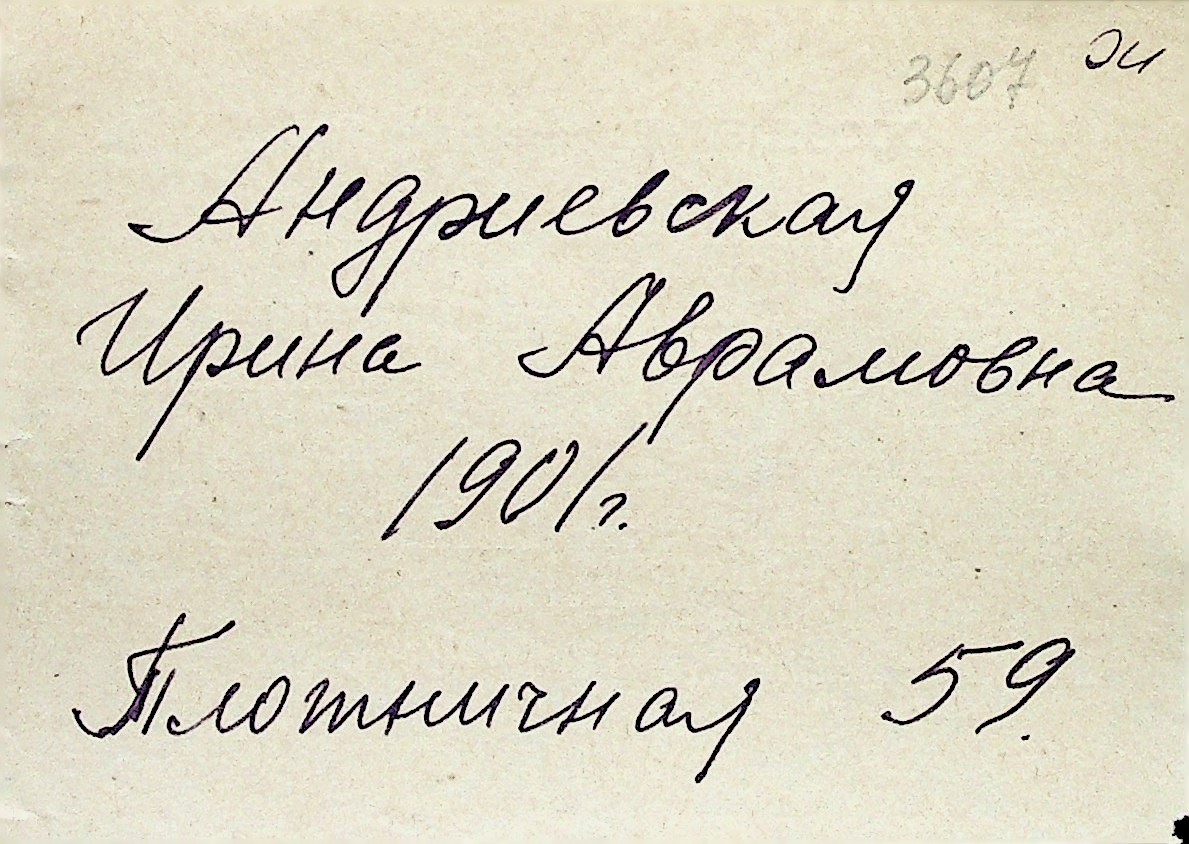 3607
Андриевская
Ирина Аврамовна
1901г.
Плотничная 59.